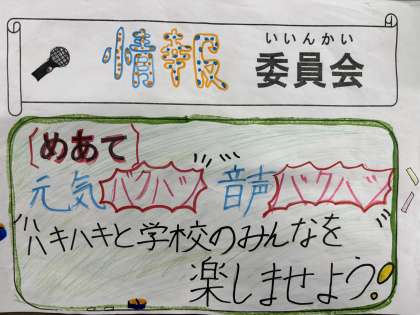 いいんかい
情報 委員会
[めあて]
元気バクハツ 音声バクハツ
ハキハキと学校のみんなを
楽しませよう!